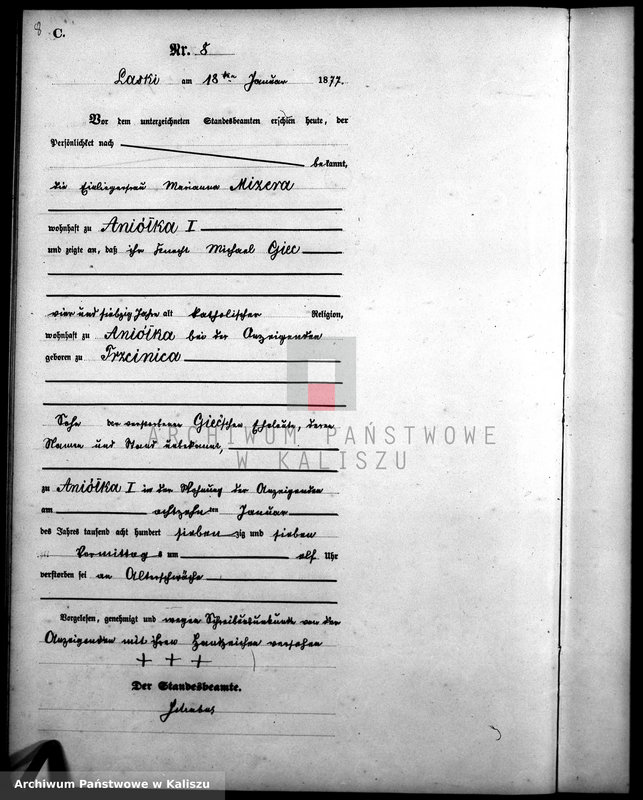 8 C.
Nr. 8
Laski am 18ten Januar 1877.
Vor dem unterzeichneten Standesbeamten erschien heute, der
Persönlichkeit nach
bekannt,
die Einliegerfrau Marianna Mizera
wohnhaft zu Aniółka I
und zeigte an, daß ihr Knecht Michael Giec
vier und siebzig Jahre alt katholischer Religion,
wohnhaft zu Aniółka bei der Anzeigenden
geboren zu Trzcinica
Sohn der verstorbenen Giec'schen Eheleute, deren
Namen und Stand unbekannt,
zu Aniółka I in der Wohnung der Anzeigenden
am achtzehnten Januar
des Jahres tausend acht hundert siebenzig und sieben
Vormittags um elf Uhr
verstorben sei an Altersschwäche
Vorgelesen, genehmigt und wegen Schreibensunkunde von der
Anzeigenden mit ihren Handzeichen versehen
+ + +
Der Standesbeamte.
ARCHIWUM PAŃSTWOWE
W KALISZU
Archiwum Państwowe w Kaliszu